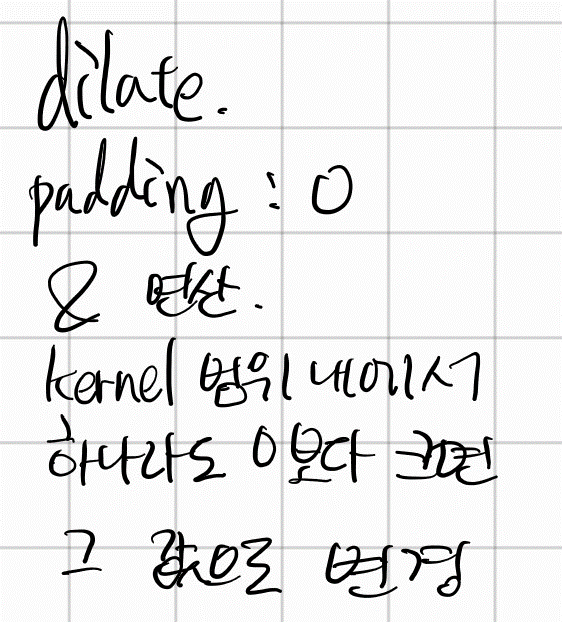 dilate.
padding : 0
& 연산.
kernel 범위 내에서
하나라도 0보다 크면
그 값으로 변경